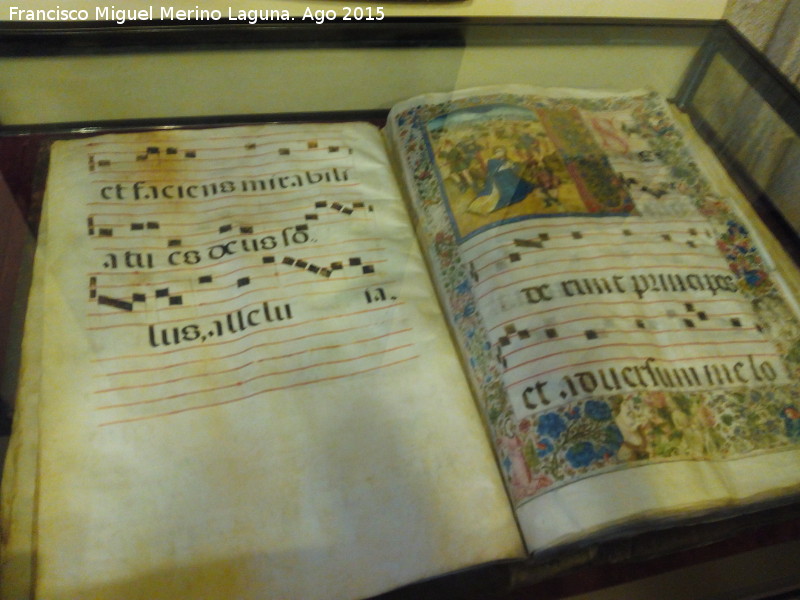 Francisco Miguel Merino Laguna. Ago 2015
et faciens mirabili
a tu es deus so
lus, allelu ia.
S
Et
de runt principes
et adversum me lo